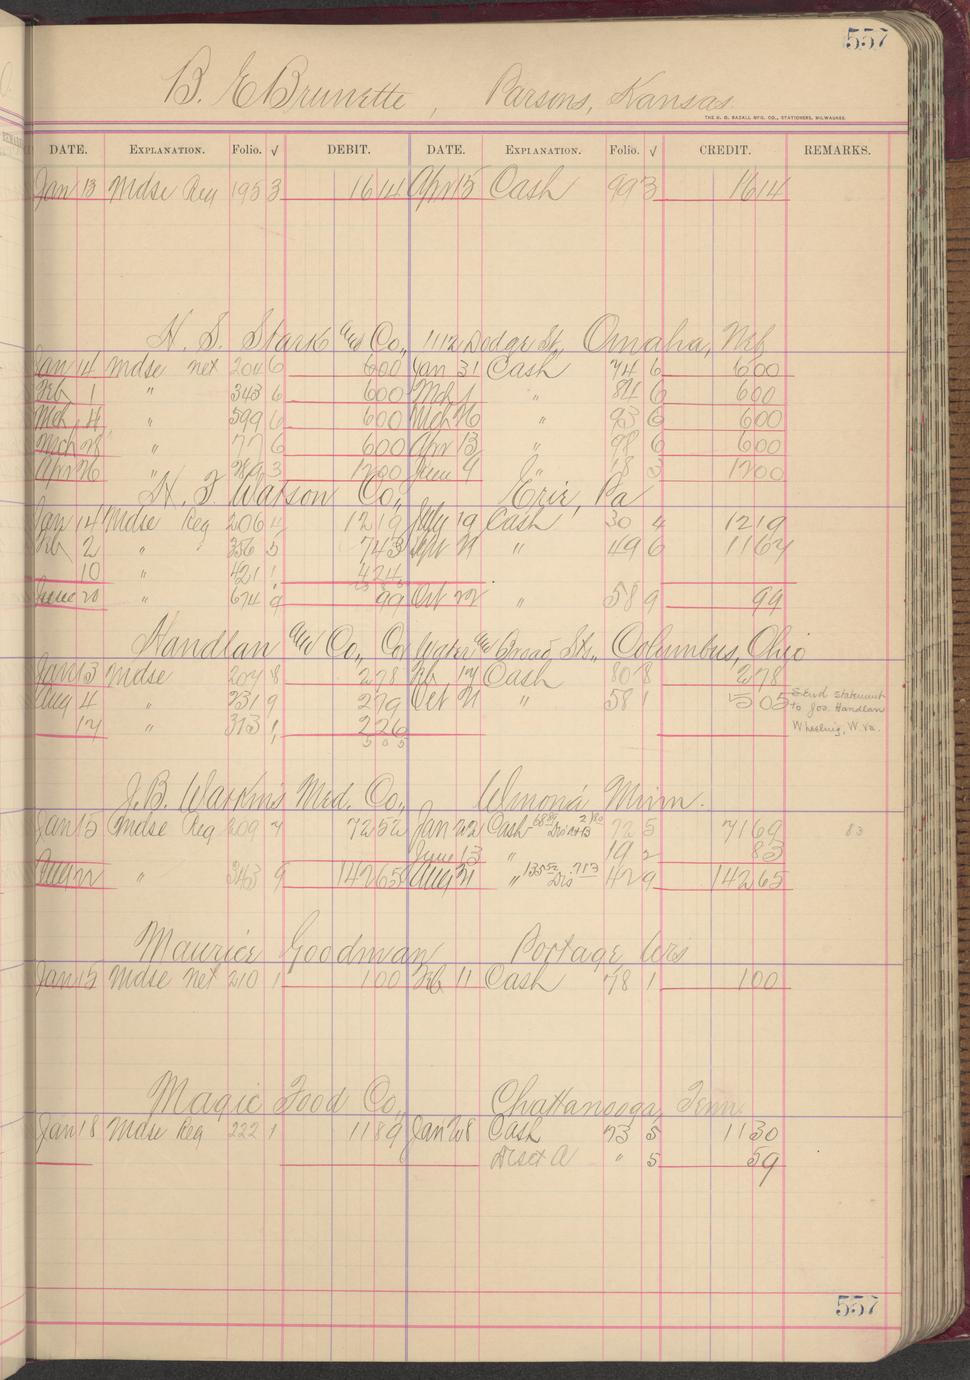 557
B. E. Brunette, Parsons, Kansas.
THE H. G. RAZALL MFG. CO., STATIONERS, MILWAUKEE.
DATE. EXPLANATION. Folio. √ DEBIT. DATE. EXPLANATION. Folio. √ CREDIT. REMARKS.
Jan 13 Mdse Reg 195 3 16 14 Apr 15 Cash 99 3 16 14
H. S. Stark and Co., 1112 Dodge St., Omaha, Neb
Jan 14 Mdse net 204 6 6 00 Jan 31 Cash 74 6 6 00
Feb 1 " 343 6 6 00 Mch 1 " 84 6 6 00
Mch 4 " 599 6 6 00 Mch 16 " 93 6 6 00
Mch 28 " 77 6 6 00 Apr 13 " 98 6 6 00
Apr 26 " 3 12 00 June 9 " 18 3 12 00
H. T. Watson Co., Erie, Pa
Jan 14 Mdse Reg 206 4 12 19 July 19 Cash 30 4 12 19
Feb 2 " 356 5 7 43 Sept 21 " 49 6 11 67
10 " 421 1 4 24
June 20 " 674 9 99 Oct 22 " 58 9 99
Handlan and Co., Cor Water and Broad Sts., Columbus, Ohio
Jan 13 Mdse 204 8 2 78 Feb 17 Cash 80 8 2 78
Aug 4 " 231 9 2 79 Oct 21 " 58 1 5 05 Send statement
to Jos. Handlan
17 " 313 1 2 26 Wheeling, W. Va.
5 0 5
J. B. Watkins Med. Co., Winona Minn.
Jan 15 Mdse Reg 209 7 72 52 Jan 22 Cash 68 89 Dis 2 80 72 5 71 69 83
June 13 " 19 2 83
Aug 22 " 343 9 142 65 Aug 31 " 135 52 Dis 7 13 42 9 142 65
Maurice Goodman Portage Wis
Jan 15 Mdse net 210 1 1 00 Feb 11 Cash 78 1 1 00
Magic Food Co., Chattanooga, Tenn.
Jan 18 Mdse Reg 222 1 11 89 Jan 28 Cash 73 5 11 30
Disct A " 5 59
557